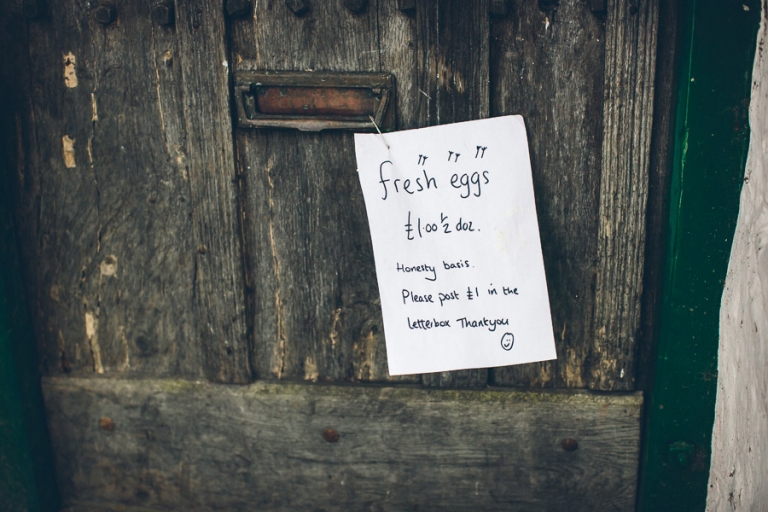 fresh eggs
£1.00 ½ doz.
Honesty basis.
Please post £1 in the
letterbox Thankyou